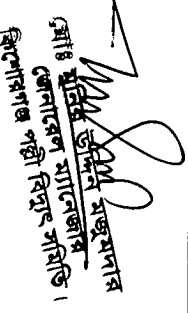 মোঃ মুনির উদ্দিন মজুমদার
জেনারেল ম্যানেজার
কিশোরগঞ্জ পল্লী বিদ্যুৎ সমিতি।